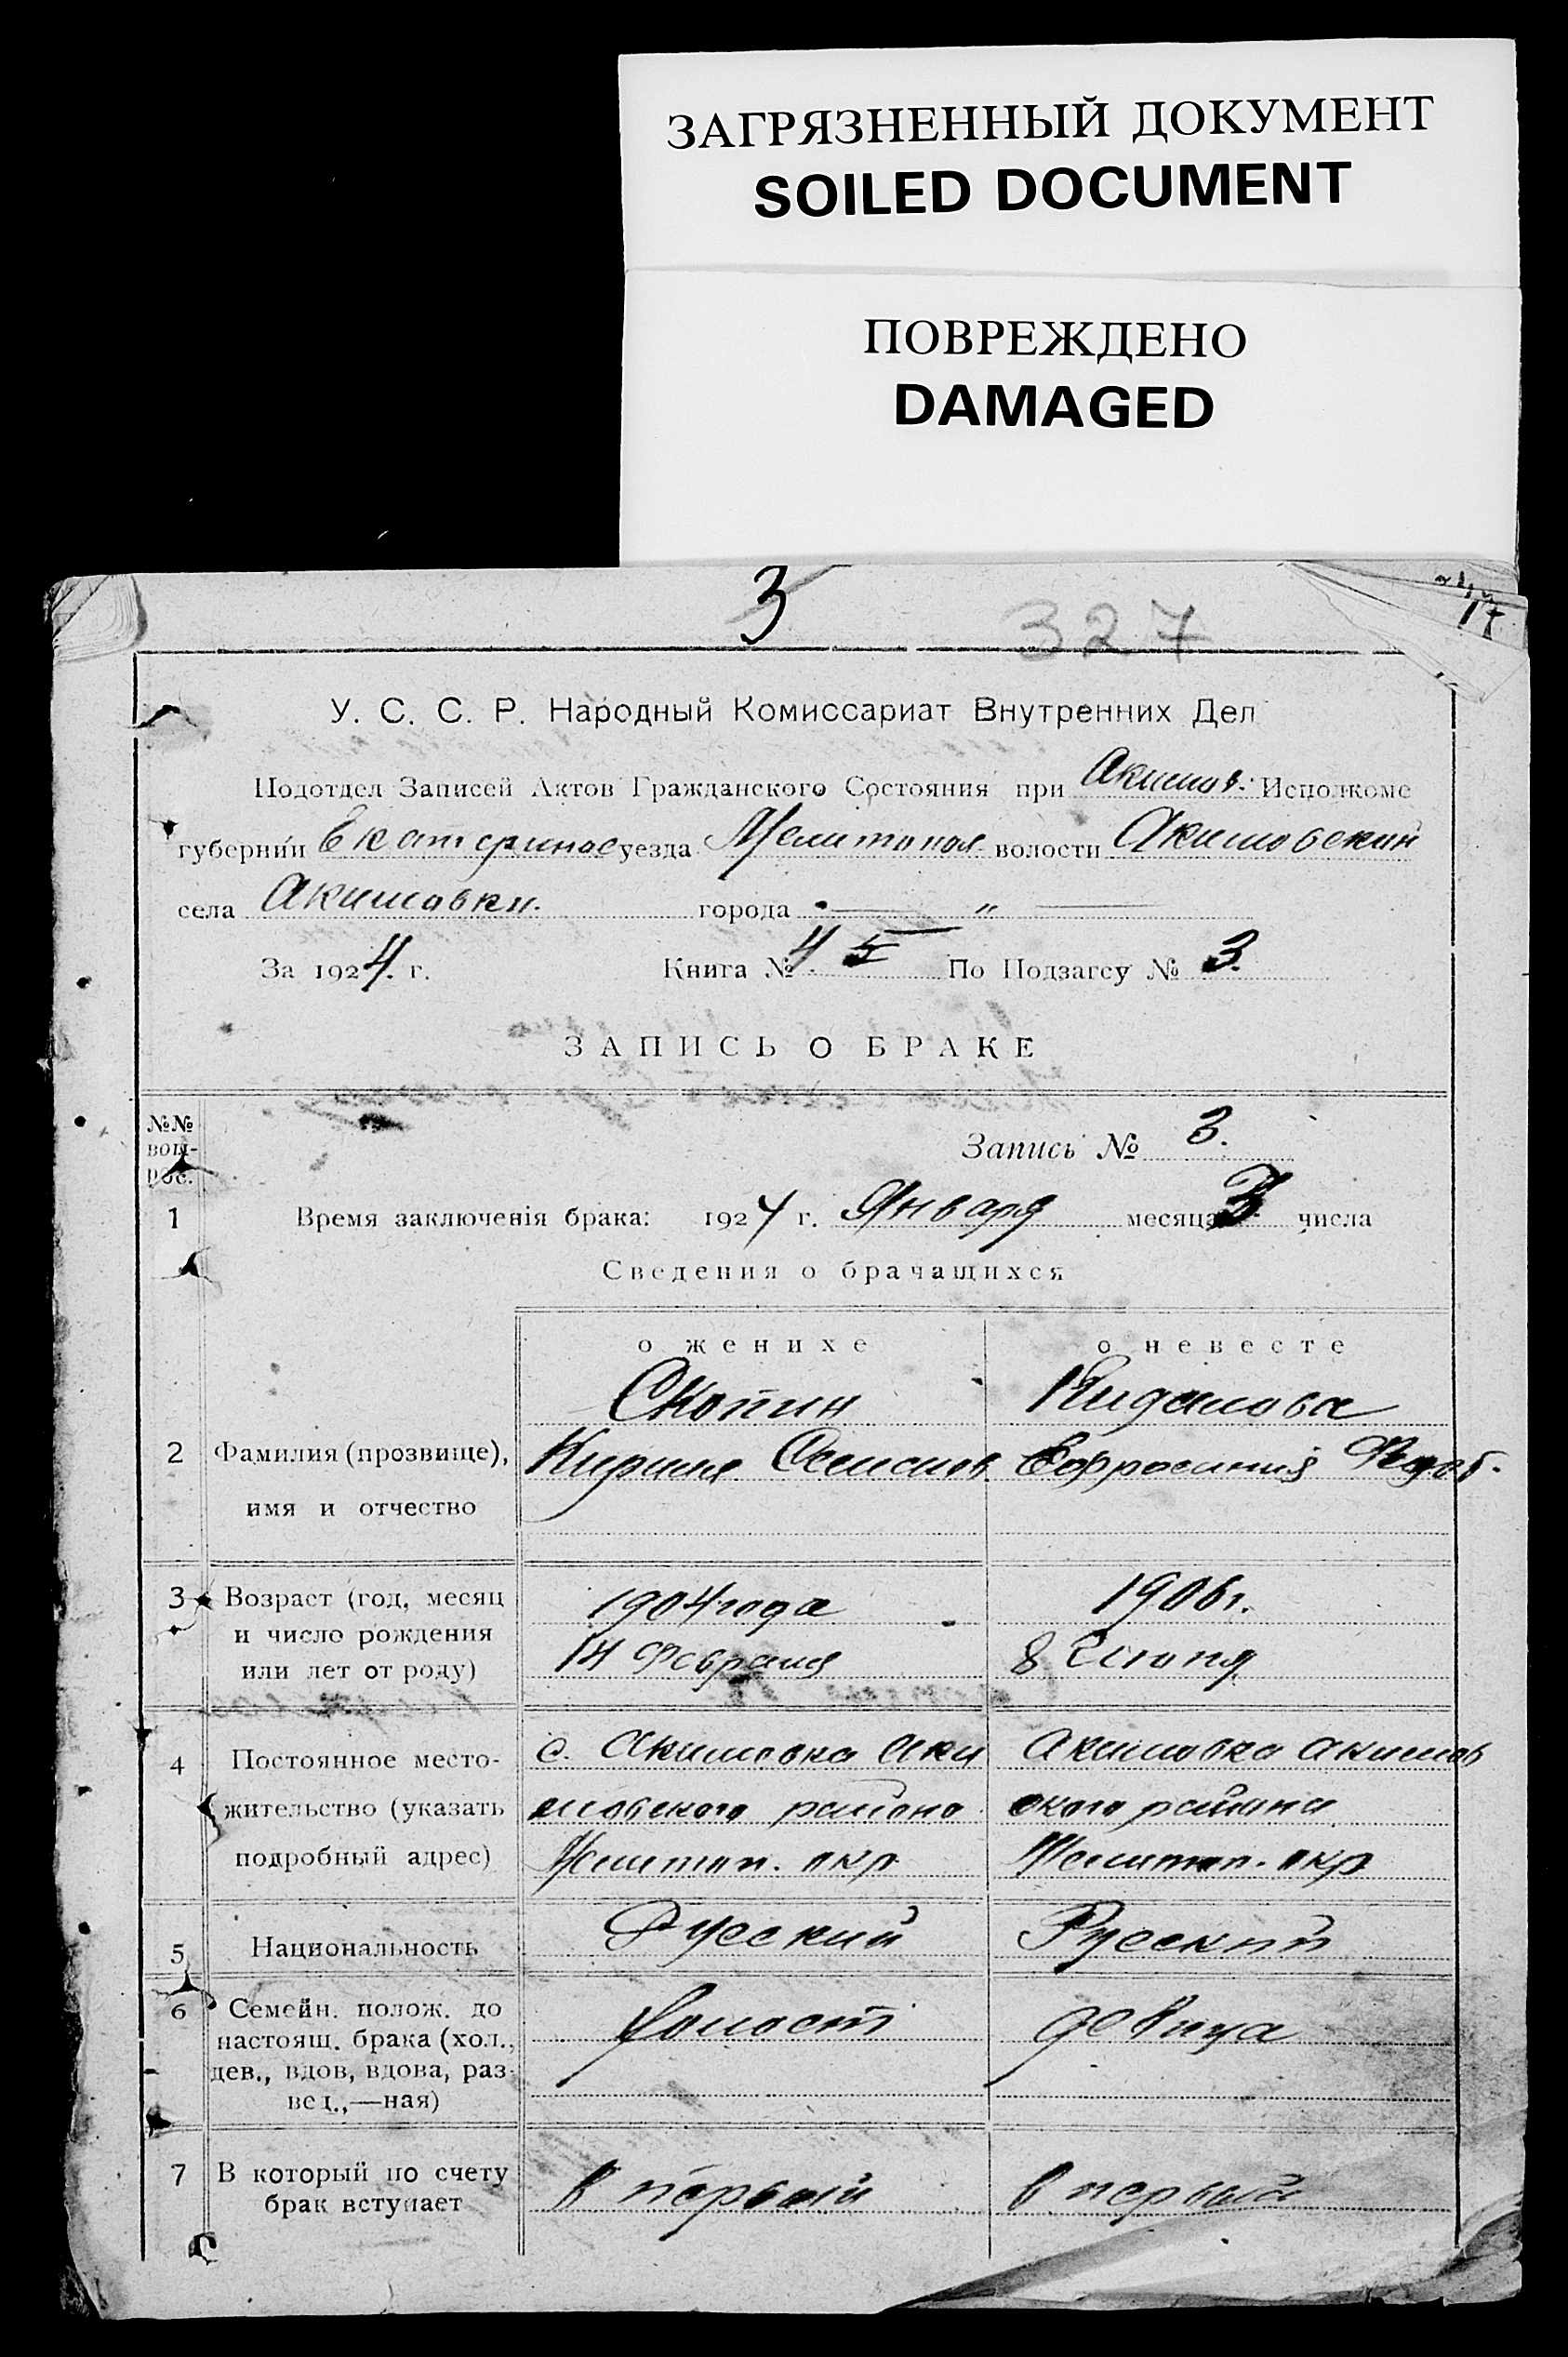 ЗАГРЯЗНЕННЫЙ ДОКУМЕНТ
SOILED DOCUMENT
ПОВРЕЖДЕНО
DAMAGED
3
327
У. С. С. Р. Народный Комиссариат Внутренних Дел
Подотдел Записей Актов Гражданского Состояния при Акимов. Исполкоме
губернии Екатеринос уезда Мелитопол волости Акимовский
села Акимовки. города — „ —
За 1924. г. Книга № По Подзагсу № 3.
ЗАПИСЬ О БРАКЕ
№№ вопрос.
Запись № 3.
1 Время заключенія брака: 1924 г. Января месяца 3 числа
Сведения о брачащихся
о женихе о невесте
Скопин
2 Фамилия (прозвище), Кирилл Ефросиния
имя и отчество
3 Возраст (год, месяц 1904 года 1906 г.
и число рождения
или лет от роду) 14 Февраля 8
4 Постоянное место- с. Акимовка Аки Акимовка Акимов
жительство (указать мовского района ского района
подробный адрес) Мелитоп. окр Мелитоп. окр
5 Национальность Русский Русский
6 Семейн. полож. до холост девица
настоящ. брака (хол.,
дев., вдов, вдова, раз-
вед.,—ная)
7 В который по счету в первый в первый
брак вступает